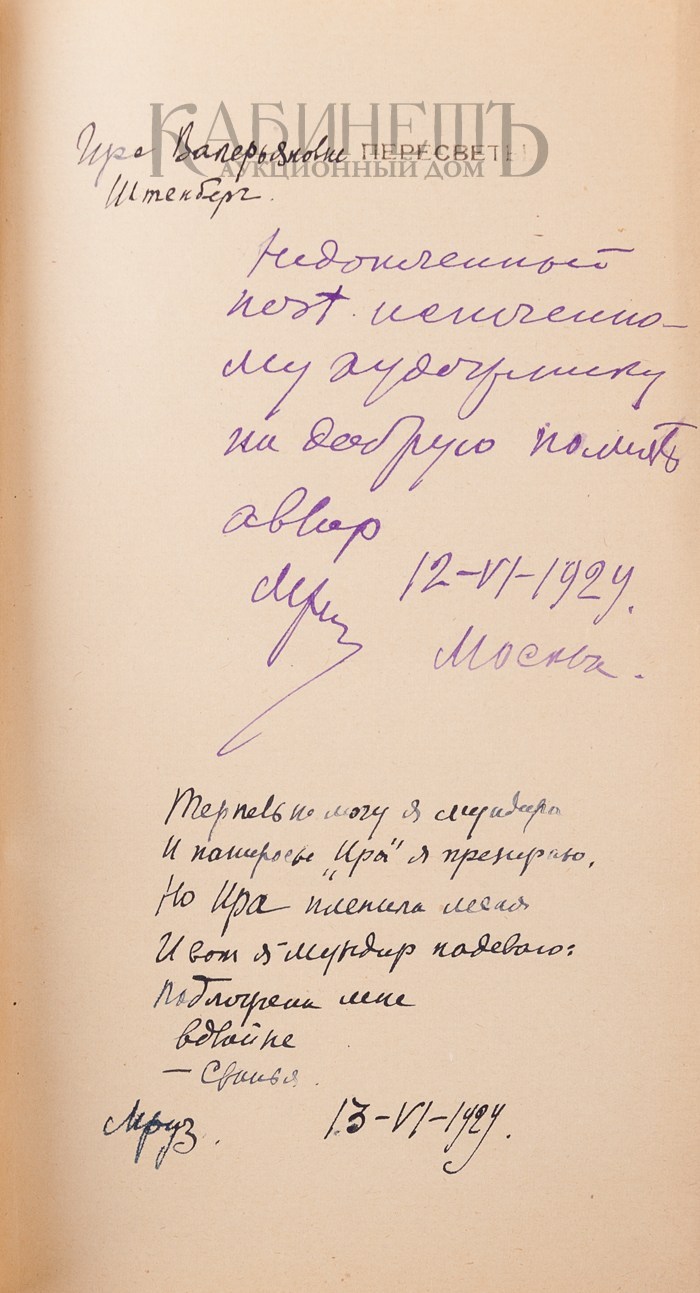 КАБИНЕТЪ
АУКЦИОННЫЙ ДОМ
Ире Валерьяновне ПЕРЕСВЕТ
Штенберг.
поэт
му художнику
на добрую память
автор
Мруз 12-VI-1929.
Москва.
Терпеть не могу я мундира
И папиросы "Ира" я презираю,
Но Ира пленила меня
И вот я мундир надеваю:
мне
вдвойне
— Свинья.
Мруз. 13-VI-1929.